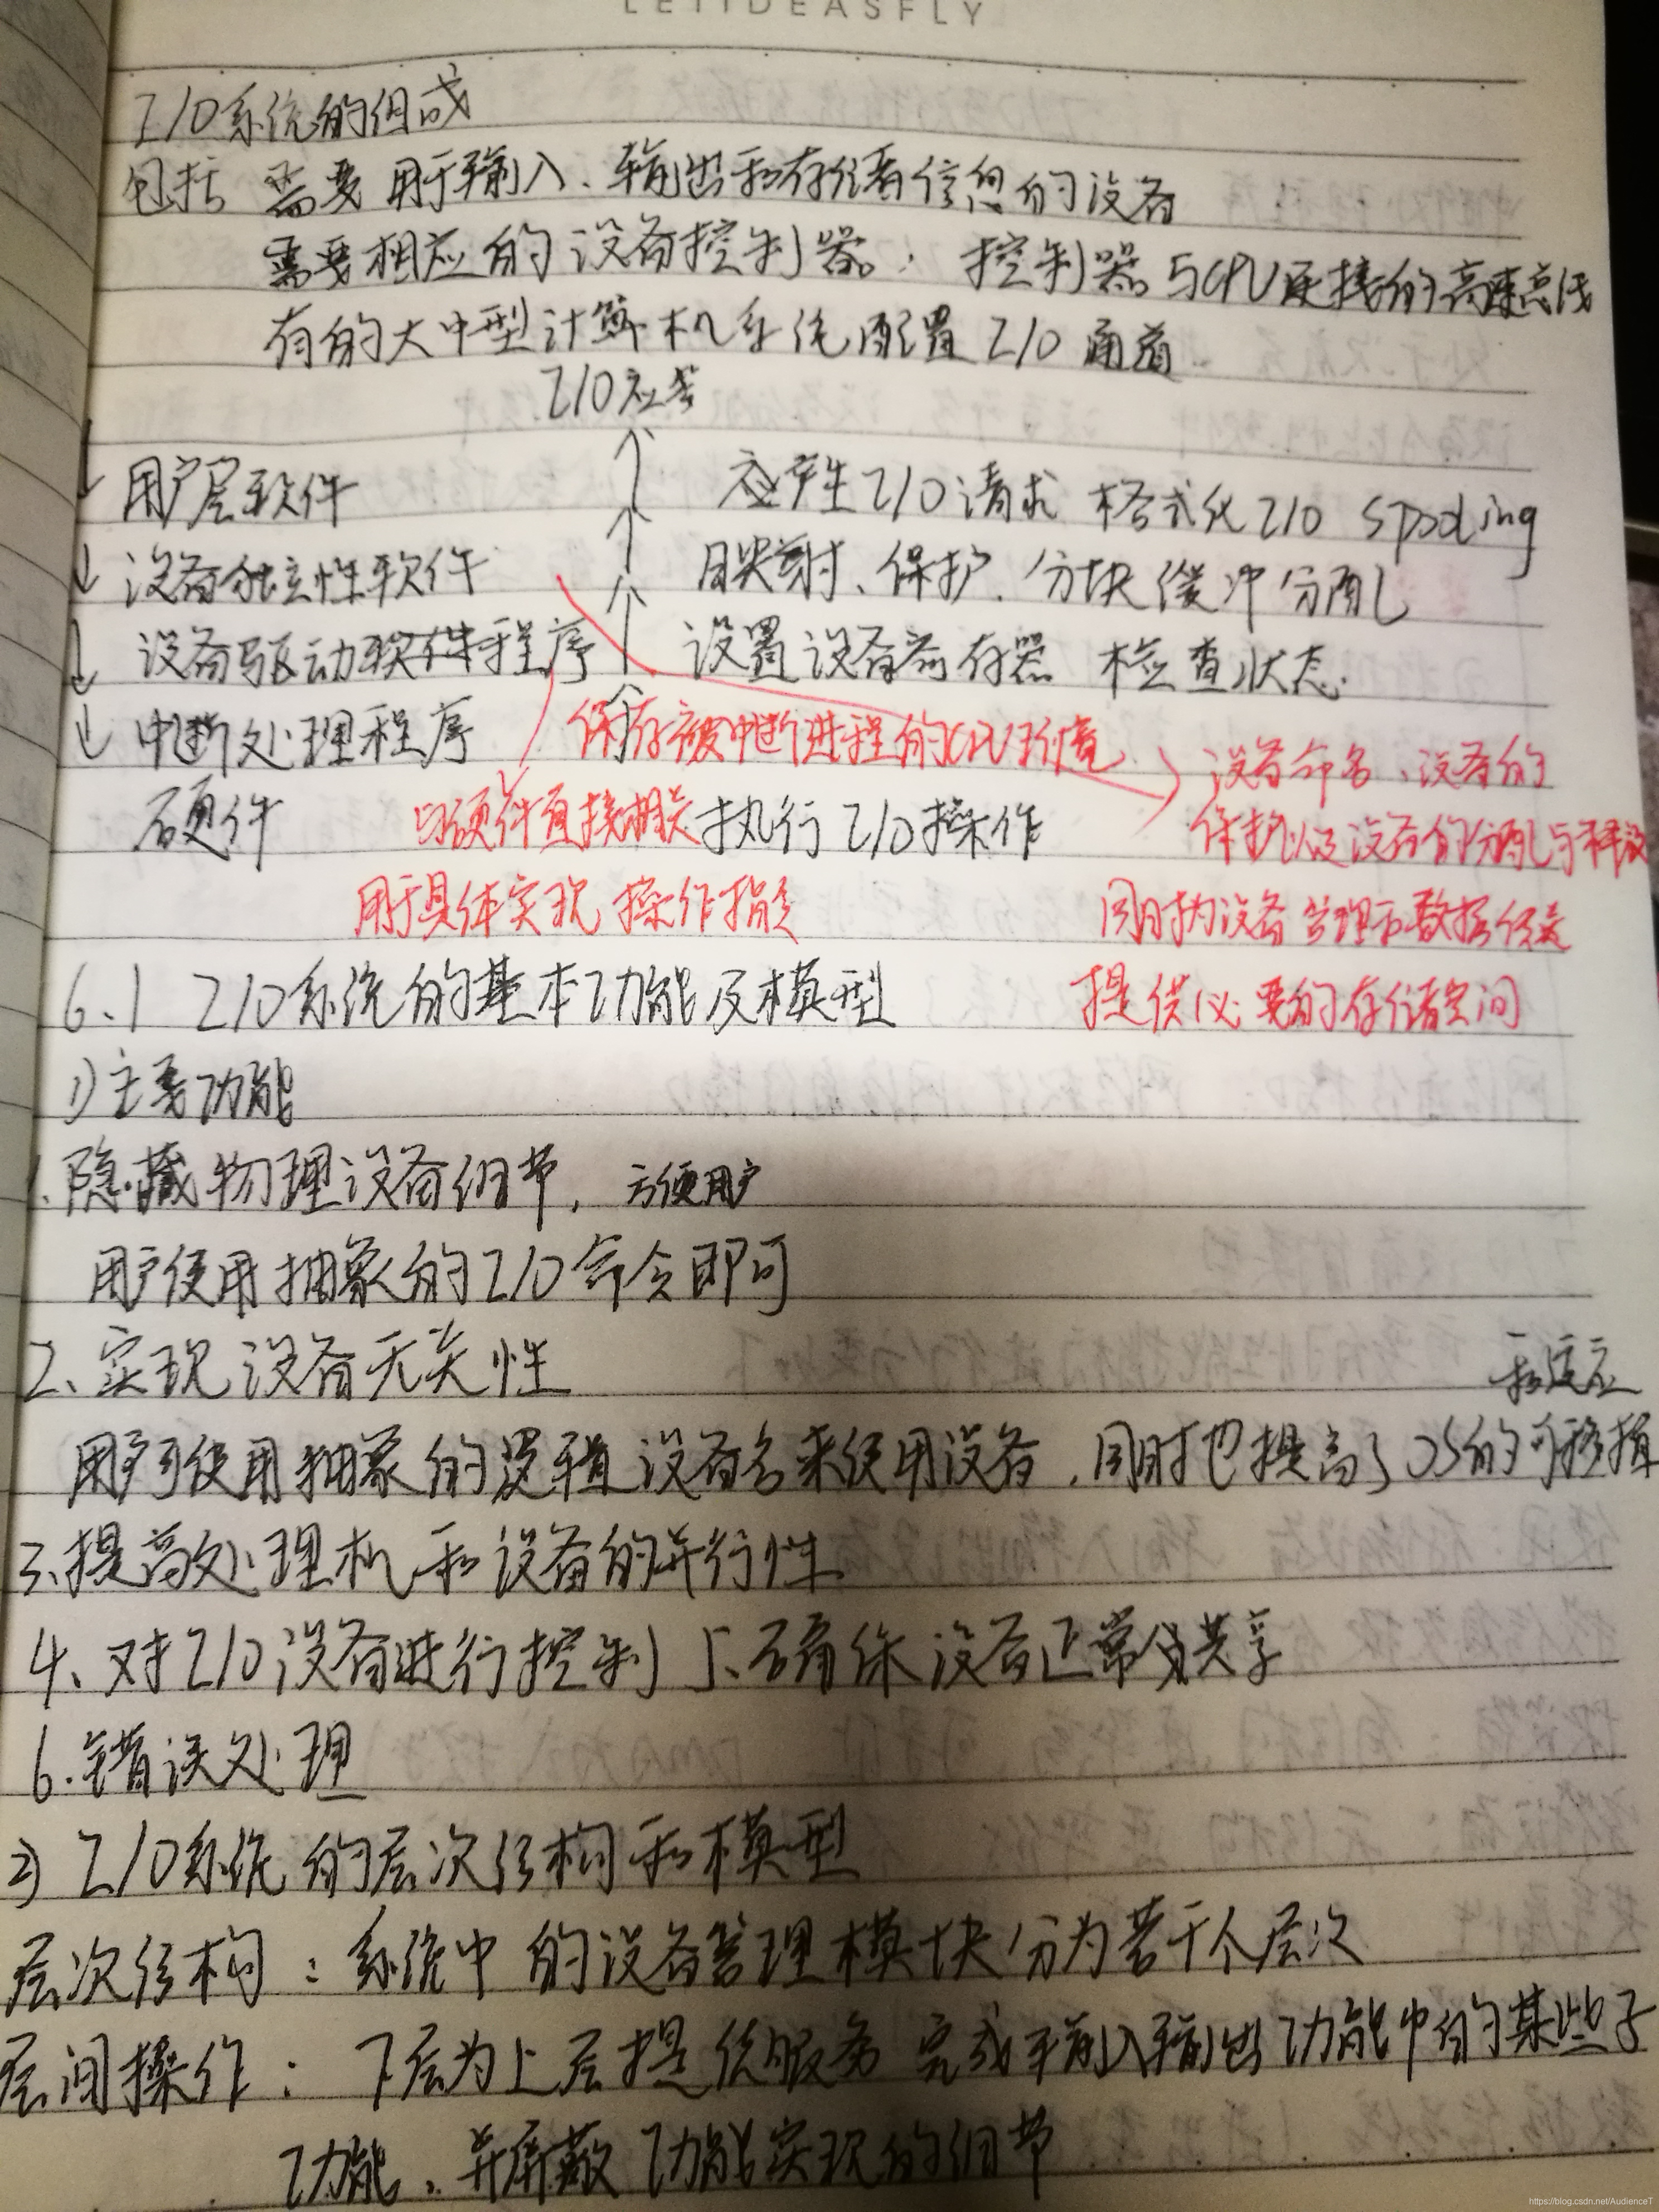 LETIDEASFLY
I/O系统的组成
包括 需要用于输入、输出和存储信息的设备
需要相应的设备控制器; 控制器与CPU连接的高速总线
有的大中型计算机系统配置I/O通道
I/O应答
用户层软件 产生I/O请求 格式化I/O spooling
设备独立性软件 映射、保护、分块 缓冲 分配
设备驱动软件程序 设置设备寄存器 检查状态
中断处理程序 保存被中断进程的CPU环境 设备命名、设备的
硬件 与硬件直接相关 执行I/O操作 保护以及设备的分配与释放
用于具体实现 操作指令 同时为设备管理和数据传送
6.1 I/O系统的基本功能及模型 提供必要的存储空间
1)主要功能
1.隐藏物理设备细节, 方便用户
用户使用抽象的I/O命令即可
2、实现设备无关性 和适应
用户可使用抽象的逻辑设备名来使用设备,同时也提高了OS的可移植
3.提高处理机和设备的并行性
4、对I/O设备进行控制 5、确保设备正常共享
6.错误处理
2) I/O系统的层次结构和模型
层次结构: 系统中的设备管理模块分为若干个层次
层间操作: 下层为上层提供服务 完成输入输出功能中的某些子
功能、并屏蔽功能实现的细节
https://blog.csdn.net/AudienceT